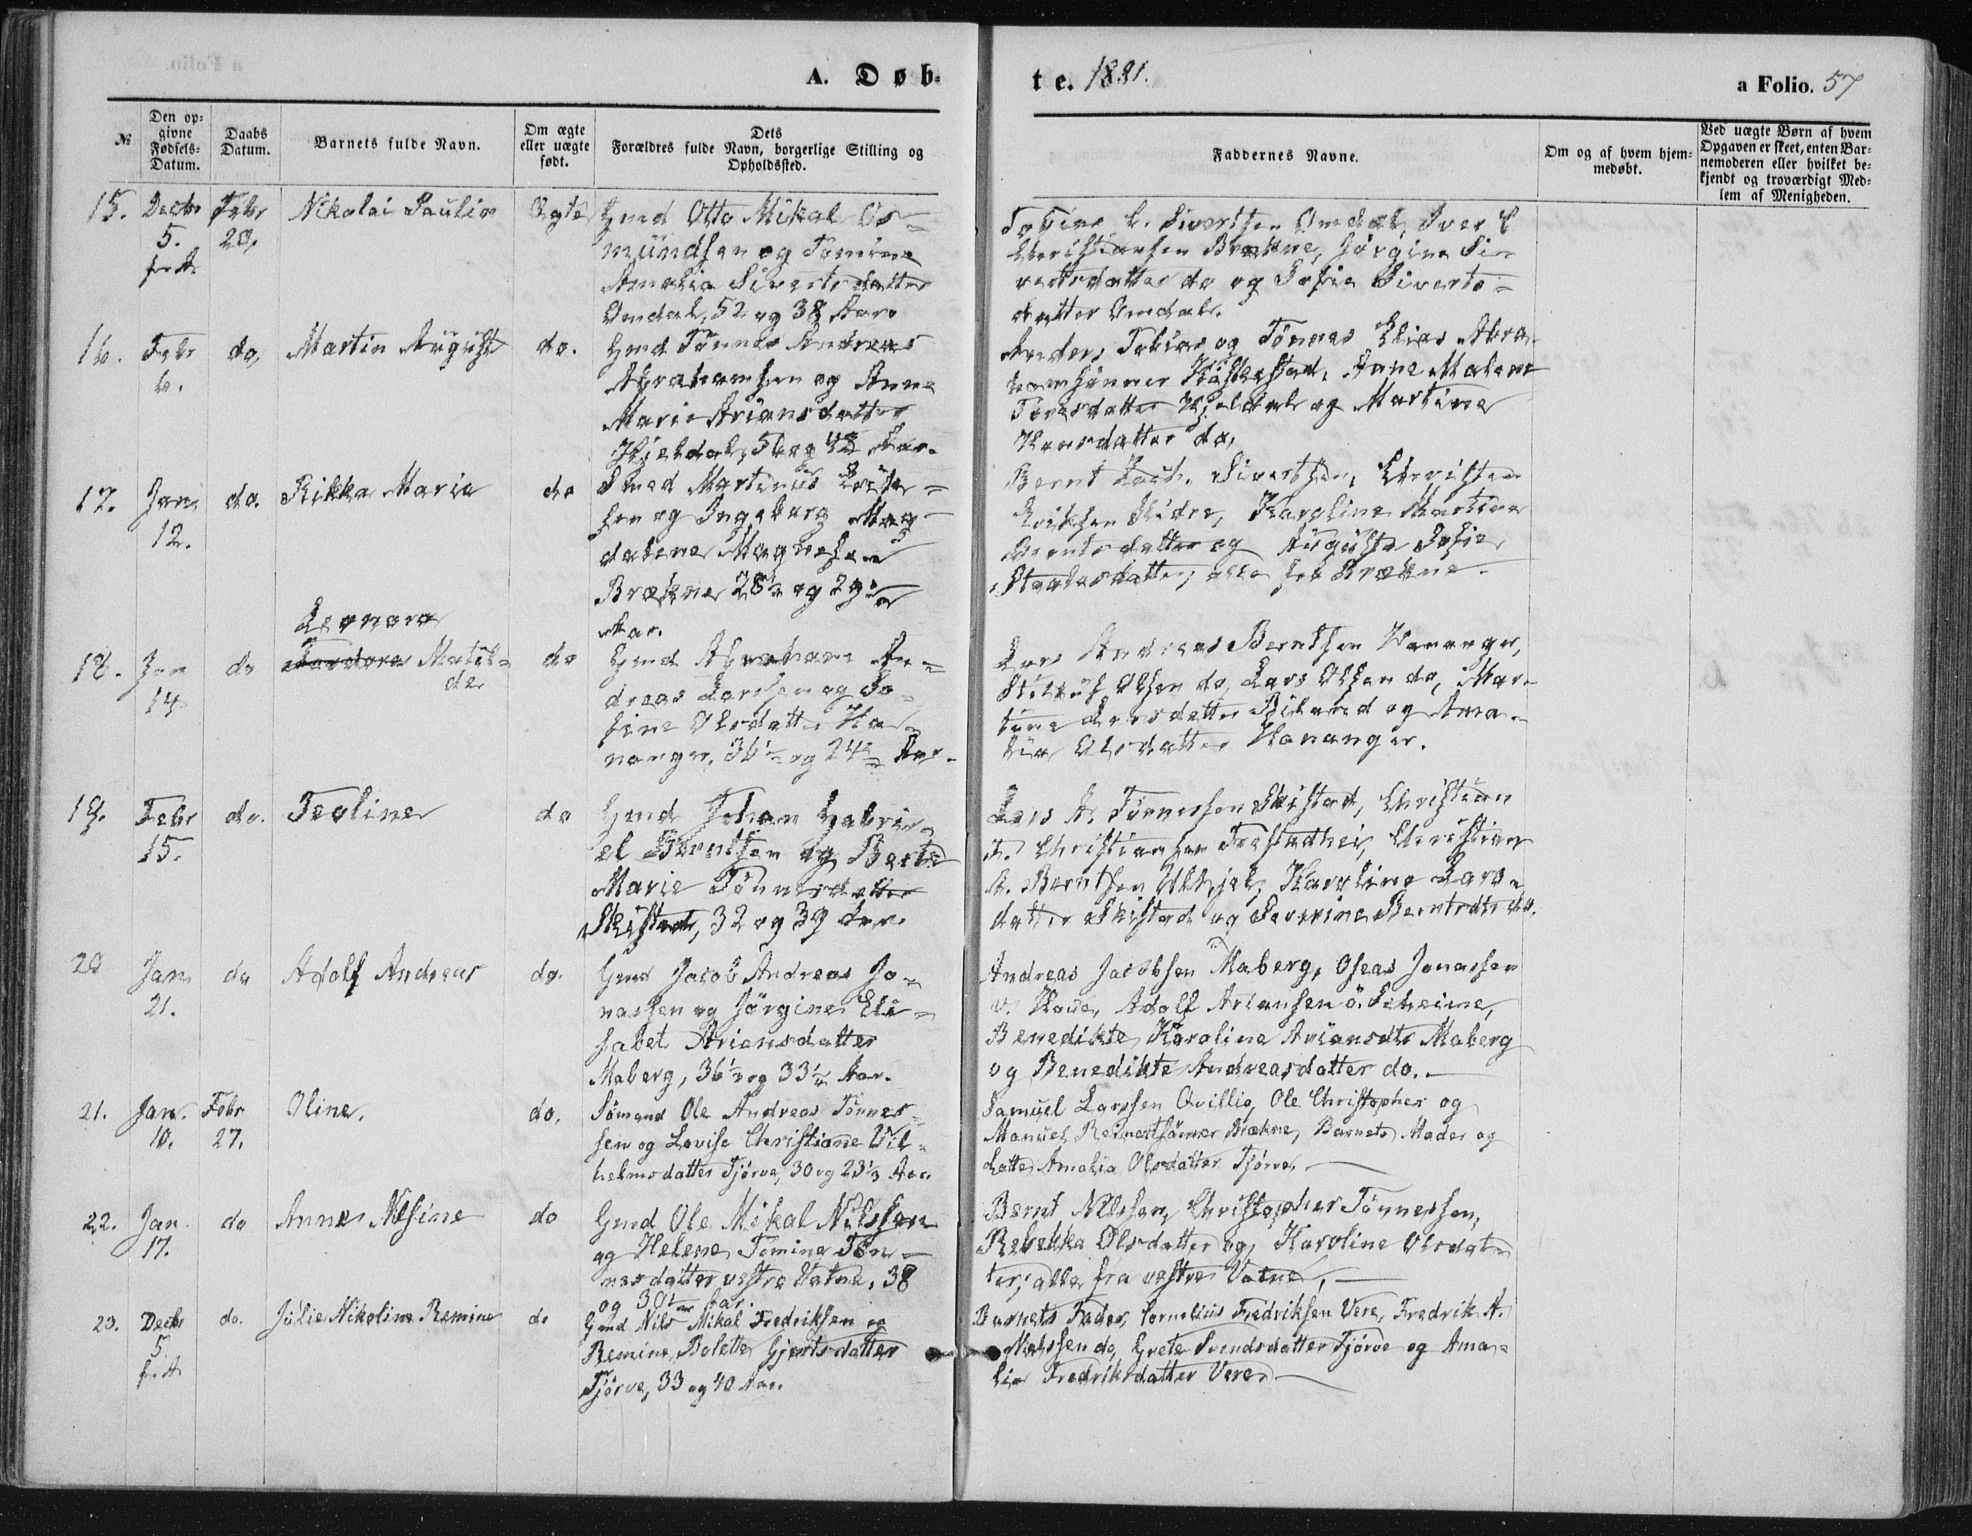 A. Døb-
te. 1881.
a Folio. 57
№
Den op-
givne
Fødsels-
Datum.
Daabs
Datum.
Barnets fulde Navn.
Om ægte
eller uægte
født.
Dets
Forældres fulde Navn, borgerlige Stilling og
Opholdssted.
Faddernes Navne.
Om og af hvem hjem-
medøbt.
Ved uægte Børn af hvem
Opgaven er skeet, enten Bar-
nemoderen eller hvilket be-
kjendt og troværdigt Med-
lem af Menigheden.
15. Decbr Febr Nikolai Paulin Ægte Gmd Otto Mikal Os-
5. 20. mundsen og Tomine
f. A. Amalia Sivertsdatter
Omdal, 52 og 38 Aar.
Sivertsen Omdal, Iver
Christiansen Brækne, Jørgine Si-
vertsdatter do og Sofie Siverts-
datter Omdal.
16. Febr do, Martin August do. Gmd Tønnes Andreas
6. Abrahamsen og Anne
Marie Ariansdatter
Kjeldal, 50 og 43 Aar.
Anders, Tobias og Tønnes Elias Abra-
hamsønner Anne Malene
Toresdatter Kjeldal og Martine
Hansdatter do,
17. Jan. do. Rikka Marie do Smed Martinus
12. sen og Ingeborg Mag-
dalene Magnesen
Brækne 28½ og 29
Aar.
Bernt Zach. Sivertsen, Christen
Karoline Martine
Berntsdatter og Augusta Sofie
alle fra Brækne.
Leonora
18. Jan do Matil- do Gmd Abraham An-
14 de dreas Larssen og Jo-
sine Olsdatter Ha-
nangr, 36½ og 24 Aar.
Lars Andreas Berntsen Hananger,
Olsen do, Lars Olsen do, Mar-
tine Larsdatter Biland og Ama-
lia Olsdatter Hananger.
19. Febr do. Teoline do Gmd Johan Gabri-
15. el Berntsen og Berte
Marie Tønnesdatter
Skistad, 32 og 39 Aar.
Lars A. Tønnessen Skistad, Christian
Christiansen Christian
A. Berntsen Karoline Lars-
datter Skistad og Severine Berntsdtr do.
20 Jan do Adolf Andreas do. Gmd Jacob Andreas Jo-
21. nassen og Jørgine Eli-
sabet Ariansdatter
Maberg, 36½ og 33½ Aar.
Andreas Jacobsen Maberg, Oseas Jonassen
v. Hauge, Adolf Ariansen ö.
Benedikte Karoline Ariansdtr Maberg
og Benedikte Andreasdatter do.
21. Jan. Febr Oline. do, Sömand Ole Andreas Tönnes-
10. 27. sen og Lovise Christiane Vil-
helmsdatter Tjörve, 30 og 23½ Aar.
Samuel Larssen Qvillio, Ole Christopher og
Manuel Reinertsönner Brækne, Barnets Moder og
Lotte Amalia Olsdatter Tjörve.
22. Jan. do Anne Nilsine do Gmd Ole Mikal Nilssen
17. og Helene Tomine Tön-
nesdatter vestre Vatne, 38
og 30½ Aar.
Bernt Nilssen, Christopher Tönnessen,
Rebekka Olsdatter og Karoline Olsdat-
ter; alle fra vestre Vatne,
23. Decbr do. Julie Nikoline Remine do Gmd Nils Mikal Fredriksen og
5 Remine Bolette Gjertsdatter
f. A. Tjörve, 33 og 40 Aar.
Barnets Fader, Cornelius Fredriksen Vere, Fredrik A.
Nilssen do, Grete Svendsdatter Tjörve og Ama-
lia Fredriksdatter Vere